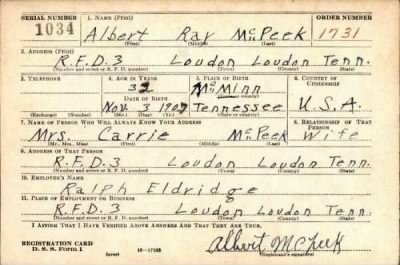 SERIAL NUMBER 1. NAME (Print) ORDER NUMBER
1034 Albert Ray McPeek 1731
(First) (Middle) (Last)
2. ADDRESS (Print)
R.F.D.3 Loudon Loudon Tenn.
(Number and street or R. F. D. number) (Town) (County) (State)
3. TELEPHONE 4. AGE IN YEARS 5. PLACE OF BIRTH 6. COUNTRY OF CITIZENSHIP
McMinn
DATE OF BIRTH (Town or county)
Nov. 3 Tennessee U.S.A.
(Exchange) (Number) (Mo.) (Day) (Yr.) (State or country)
7. NAME OF PERSON WHO WILL ALWAYS KNOW YOUR ADDRESS 8. RELATIONSHIP OF THAT PERSON
Mrs. Carrie McPeek Wife
(Mr., Mrs., Miss) (First) (Middle) (Last)
9. ADDRESS OF THAT PERSON
R.F.D.3 Loudon Loudon Tenn.
(Number and street or R. F. D. number) (Town) (County) (State)
10. EMPLOYER'S NAME
Ralph Eldridge
11. PLACE OF EMPLOYMENT OR BUSINESS
R.F.D.3 Loudon Loudon Tenn.
(Number and street or R. F. D. number) (Town) (County) (State)
I AFFIRM THAT I HAVE VERIFIED ABOVE ANSWERS AND THAT THEY ARE TRUE.
REGISTRATION CARD
D. S. S. FORM 1 (over) 16—17105 Albert McPeek
(Registrant's signature)